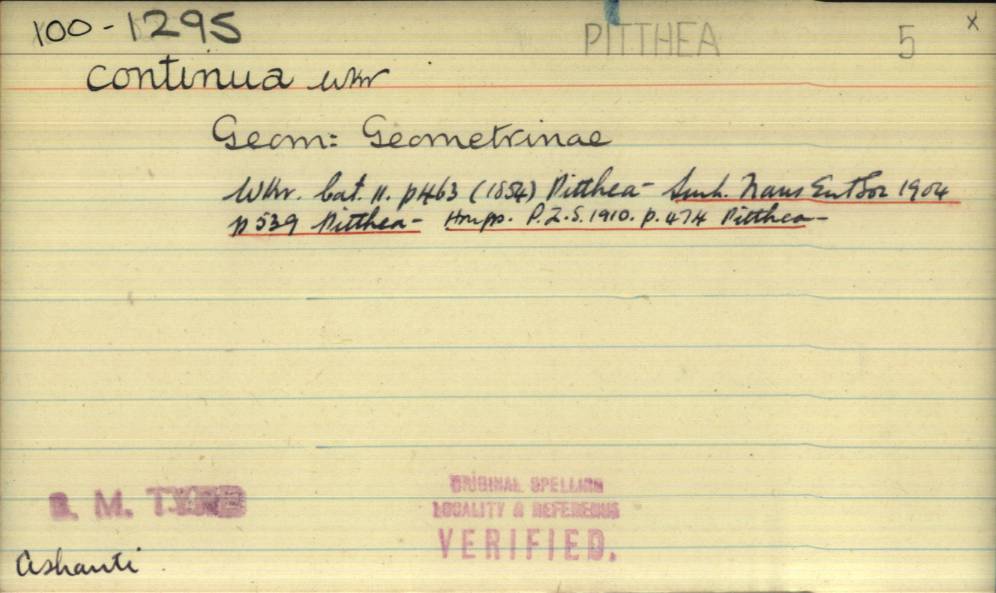 100-1295 PITTHEA 5 x
continua Wkr
Geom: Geometrinae
Wkr. Cat. 11. p463 (1854) Pitthea - Swh. Trans Ent Soc 1904
p 539 Pitthea - Hmps. P.Z.S. 1910. p. 474 Pitthea -
B. M. TYPE
ORIGINAL SPELLING
LOCALITY & REFERENCE
VERIFIED.
Ashanti